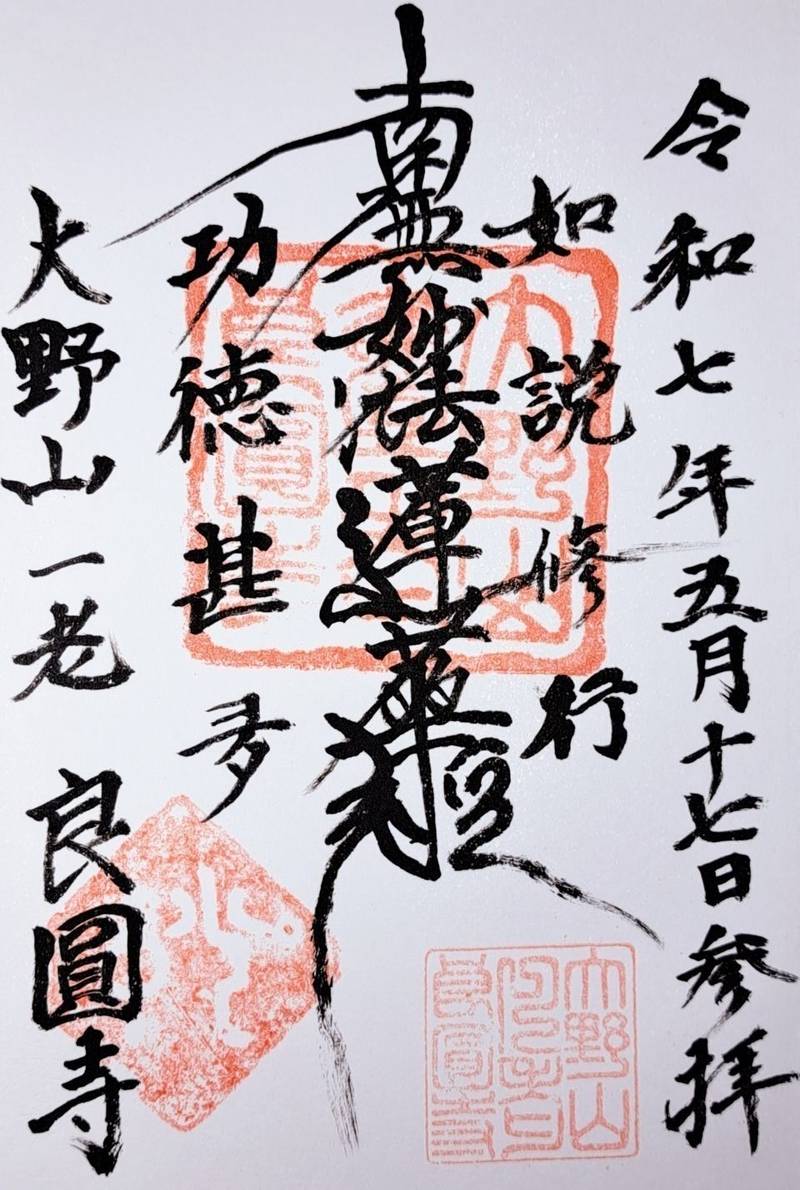 令和七年五月十七日参拝
如説修行
南無妙法蓮華経
功徳甚多
大野山一老 良圓寺
大野山
良圓寺